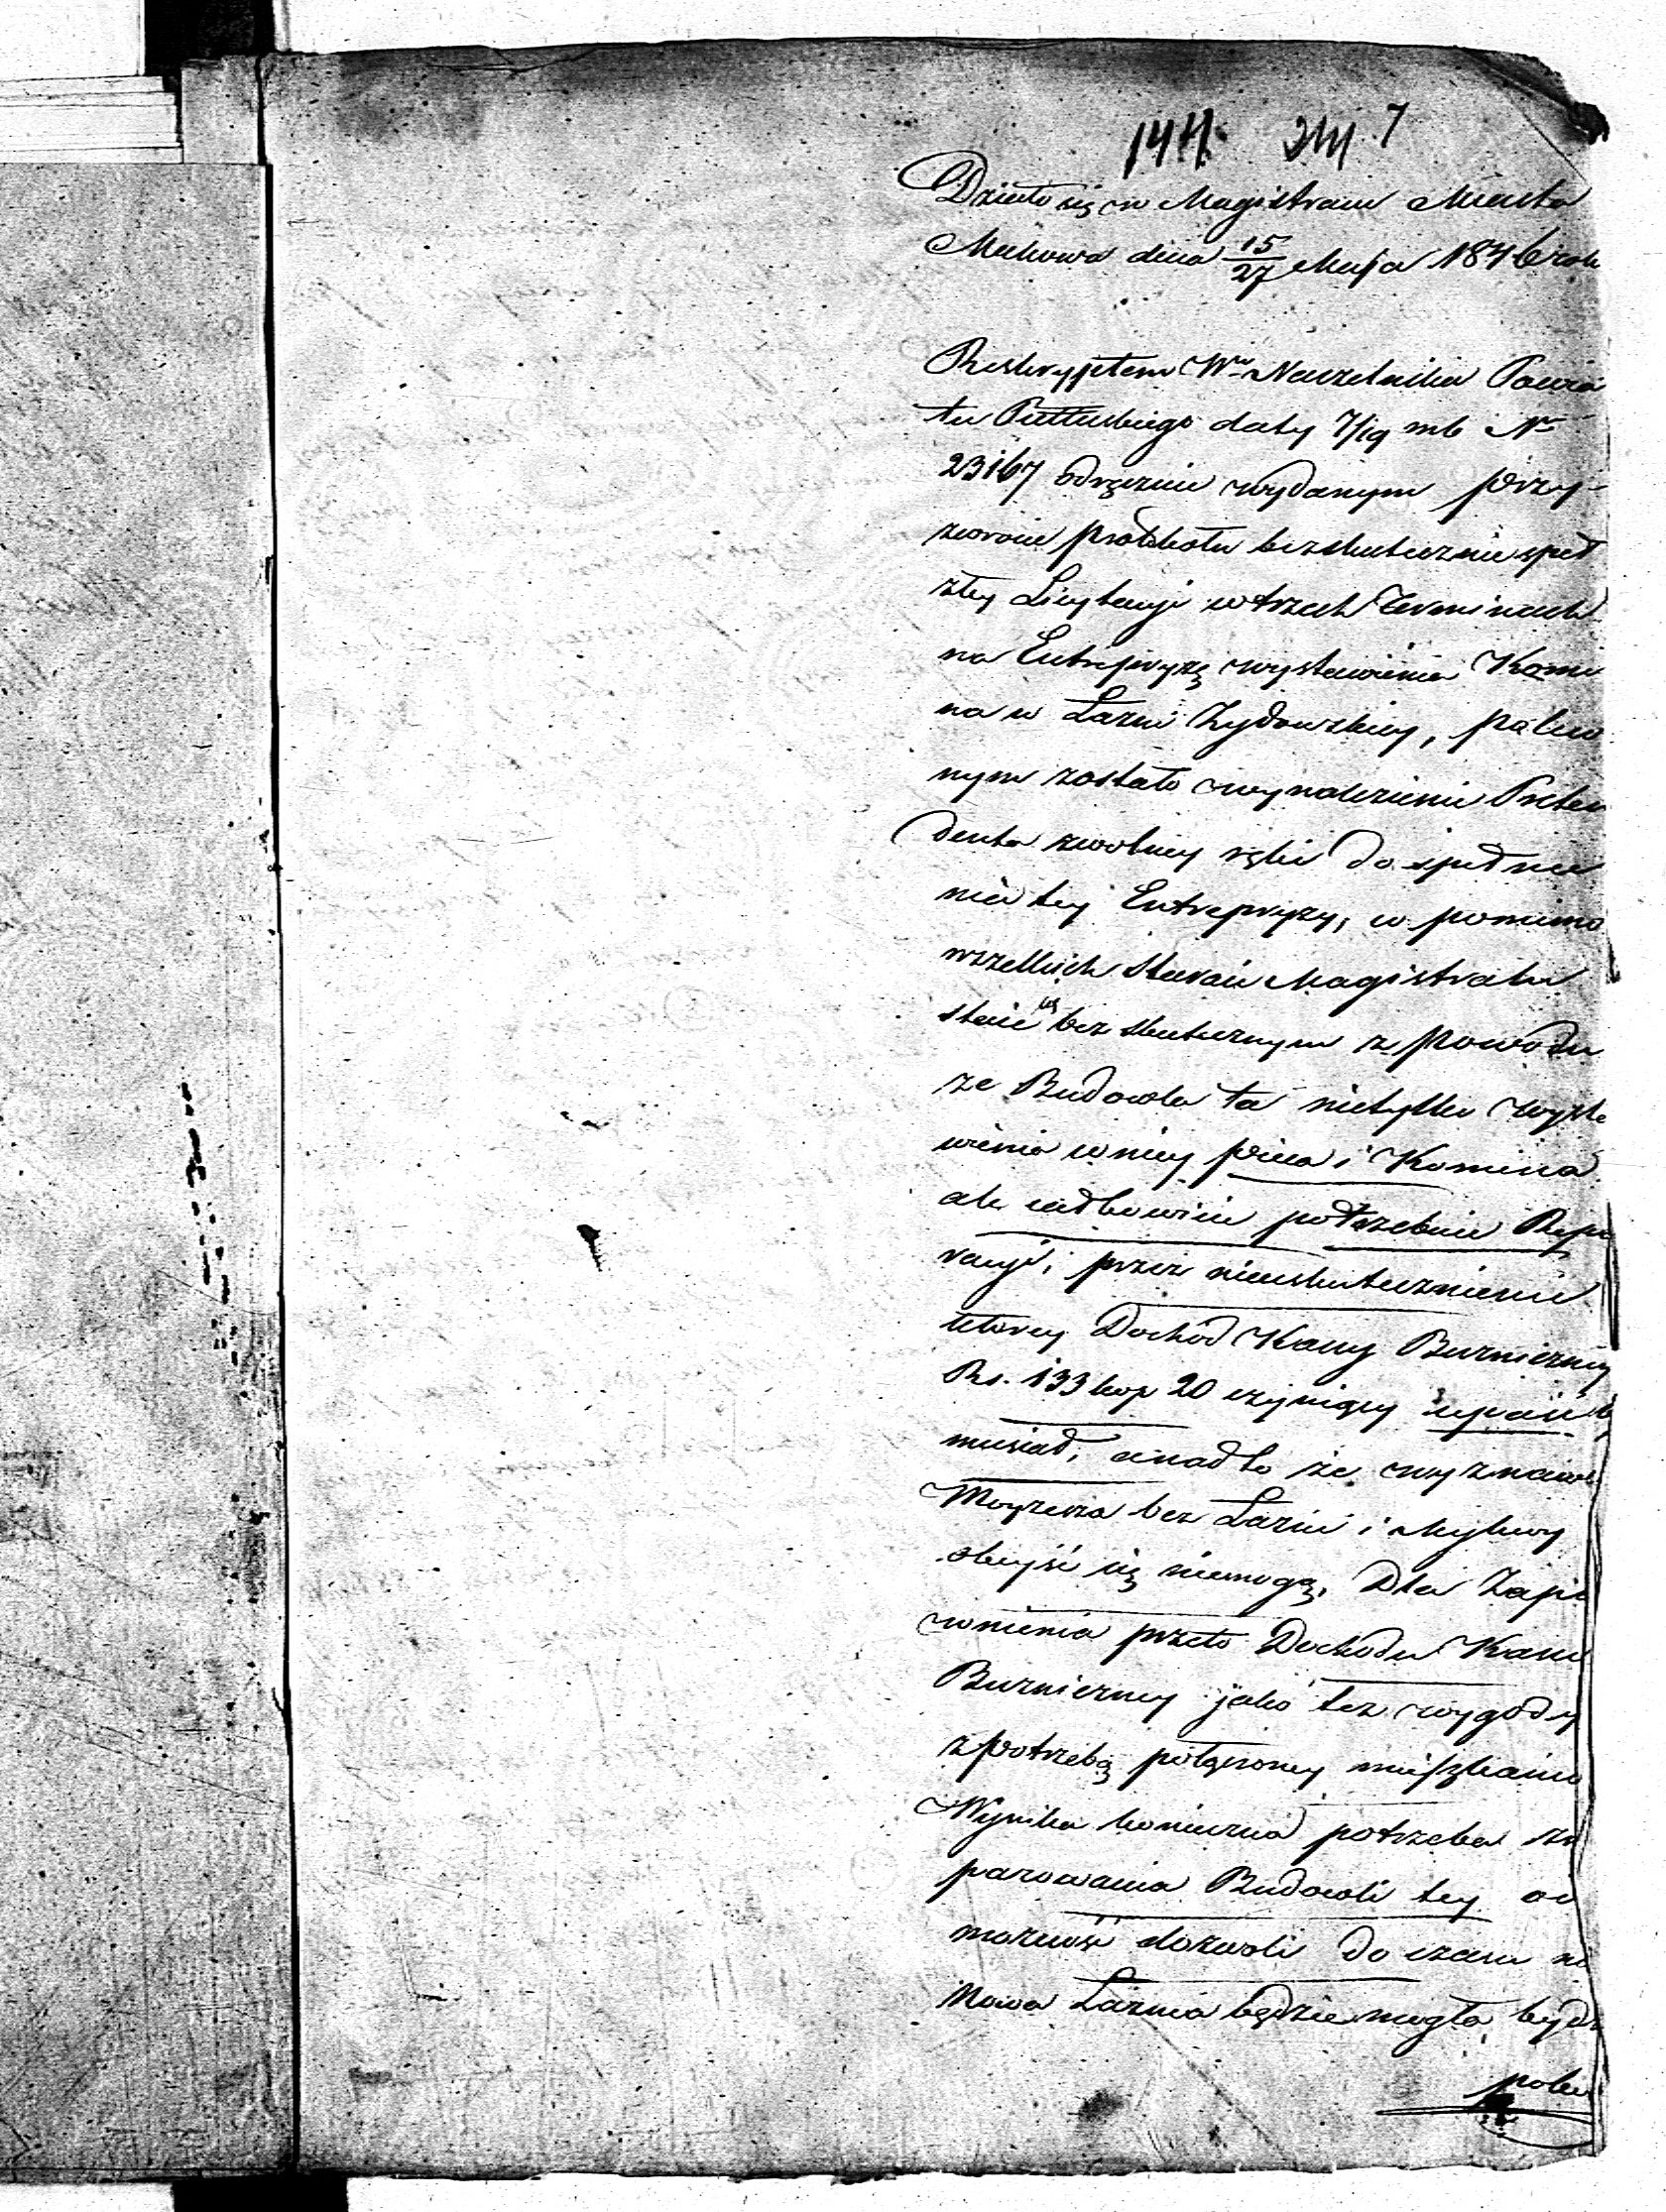 144. 241. 7
Działo się w Magistracie Miasta
Makowa dnia 15/27 Maja 1846 roku
Reskryptem Wo Naczelnika Powia
tu Pułtuskiego daty 7/19 mb No
23167 odręcznie wydanym przy
zwrocie protokołu bezskutecznie speł
złey Licytacyi w trzech Terminach
na Entrepryzę wystawienia Komi
na w Łaźni Żydowskiey, poleco
nym zostało wynalezienie Preten
denta z wolney ręki do spełnie
nia tey Entrepryzy, w pomimo
wszelkich starań Magistratu
staie się bez skutecznym z powodu
ze Budowla ta nietylko wysta
wienia w niey pieca i Komina
ale całkowicie potrzebuie Repa
racyi, przez nieuskutecznienie
którey Dochód Kassy Bużniczney
Rs. 133 kop 20 czyniący upaść by
musiał, a nadto że wyznawcy
Moyżesza bez Łaźni i Mykwy
obeyść się niemogą. Dla Zape
wnienia przeto Dochodu Kassie
Bużniczney jako też wygody
z potrzebą połączoney mieszkańców
Wynika konieczna potrzeba
parowania Budowli tey
możność dozwoli do czasu
Nowa Łaźnia będzie mogła bydź